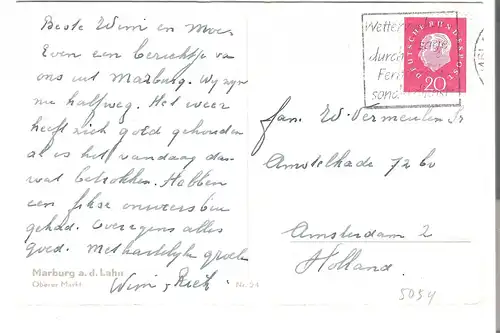 Beste Wim en Moes
Even een berichtje va
ons uit Marburg. Wy zyn
nu halfweg. Het weer
heeft zich goed gehouden
al is het vandaag dan
wat betrokken. Hebben
een fikse onweersbui
gehad. Overigens alles
goed. Met hartelyke groeten
Wim, Riek.
Marburg a. d. Lahn
Oberer Markt
Nr. 24
Wetter
durch
Fern
DEUTSCHE BUNDESPOST
20
fam. W. Vermeulen Sr
Amstelkade 72 bv
Amsterdam 2
Holland.
5054